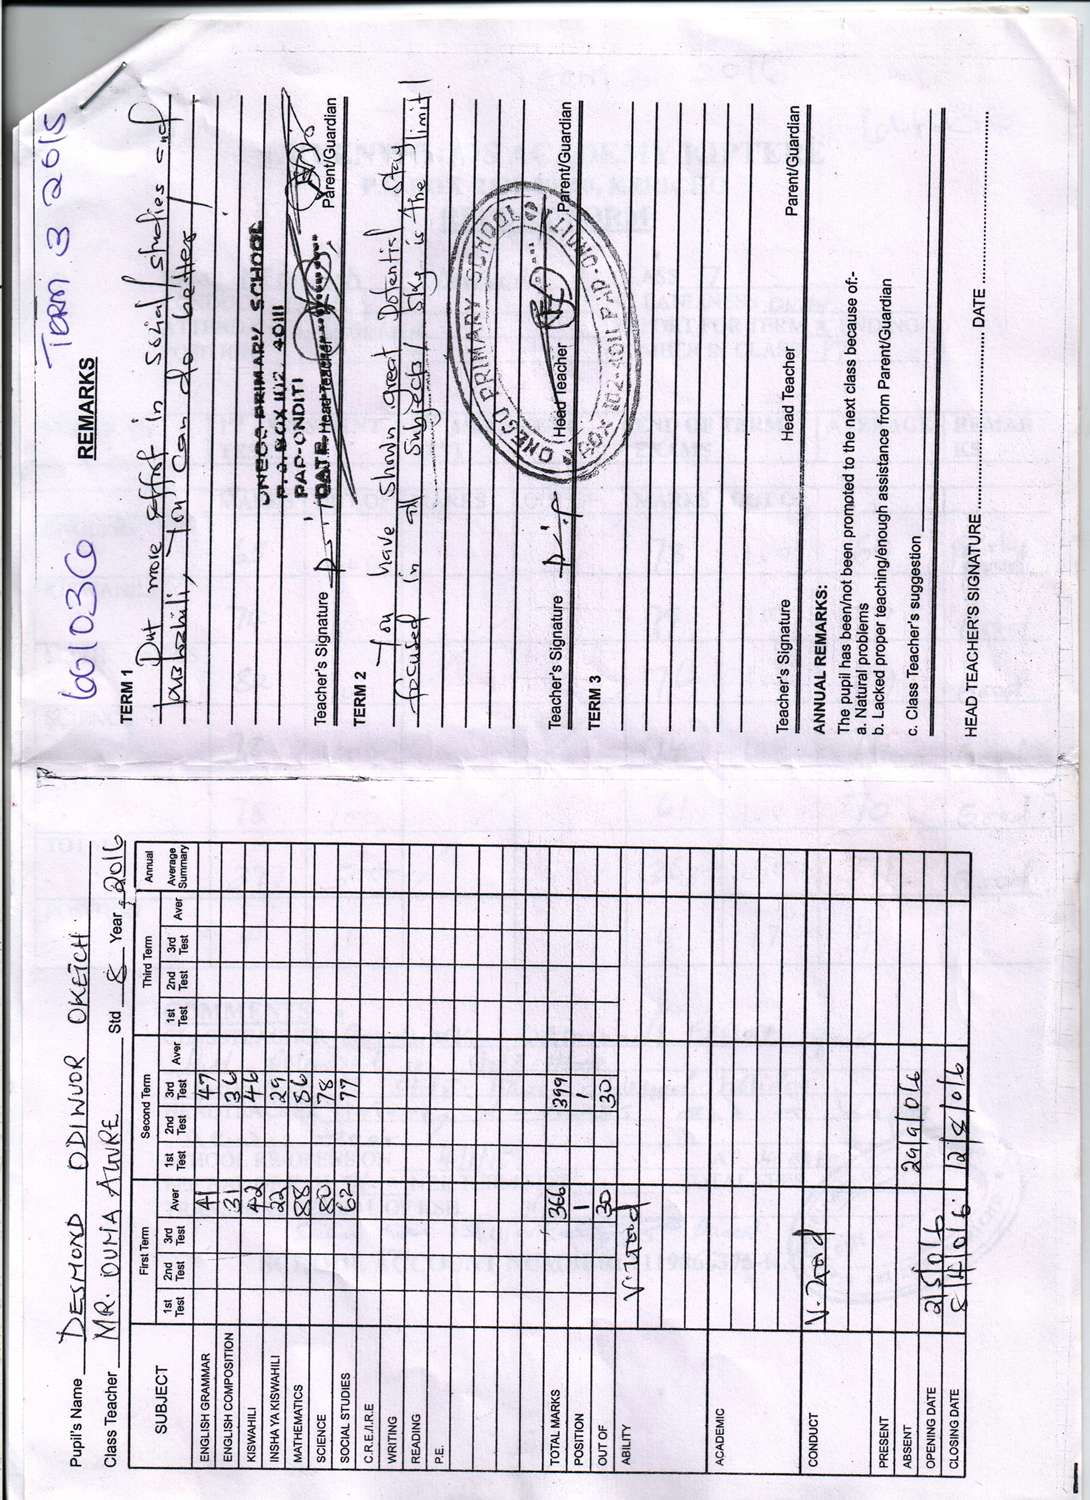 Pupil's Name DESMOND ODINUOR OKEICH
Class Teacher MR. OUMA AWRE Std 8 Year 2016
SUBJECT First Term Second Term Third Term Annual
1st Test 2nd Test 3rd Test Aver 1st Test 2nd Test 3rd Test Aver 1st Test 2nd Test 3rd Test Aver Average Summary
ENGLISH GRAMMAR 41 47
ENGLISH COMPOSITION 31 36
KISWAHILI 42 46
INSHA YA KISWAHILI 22 29
MATHEMATICS 88 86
SCIENCE 80 78
SOCIAL STUDIES 62 77
C.R.E/I.R.E
WRITING
READING
P.E.
TOTAL MARKS 366 399
POSITION 1 1
OUT OF 30 30
ABILITY V. Good
ACADEMIC
CONDUCT V. Good
PRESENT
ABSENT
OPENING DATE
CLOSING DATE 12/8/016
661036 TERM 3 2015
REMARKS
TERM 1
Put more effort in social studies and
You can do better
ONEGO PRIMARY SCHOOL
P.O. BOX 102 40111
PAP-ONDITI
DATE
Teacher's Signature Head Teacher Parent/Guardian
TERM 2
You have shown great potential stay
focused in all subjects sky is the limit
ONEGO PRIMARY SCHOOL
BOX 102-40111 PAP-ONDITI
Teacher's Signature Head Teacher Parent/Guardian
TERM 3
Teacher's Signature Head Teacher Parent/Guardian
ANNUAL REMARKS:
The pupil has been/not been promoted to the next class because of:-
a. Natural problems
b. Lacked proper teaching/enough assistance from Parent/Guardian
c. Class Teacher's suggestion
HEAD TEACHER'S SIGNATURE DATE